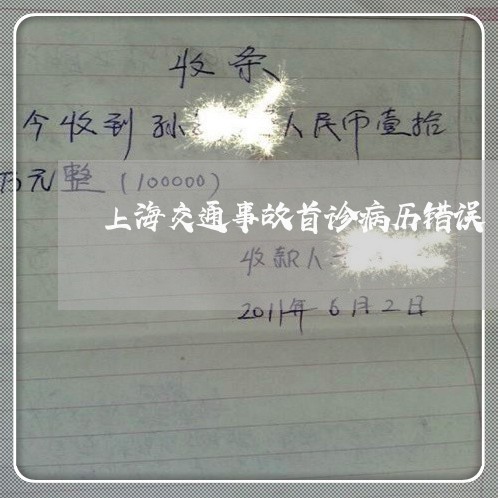 收条
今收到孙 人民币壹拾
万元整（100000）
上海交通事故首诊病历错误
收款人
2011年6月2日